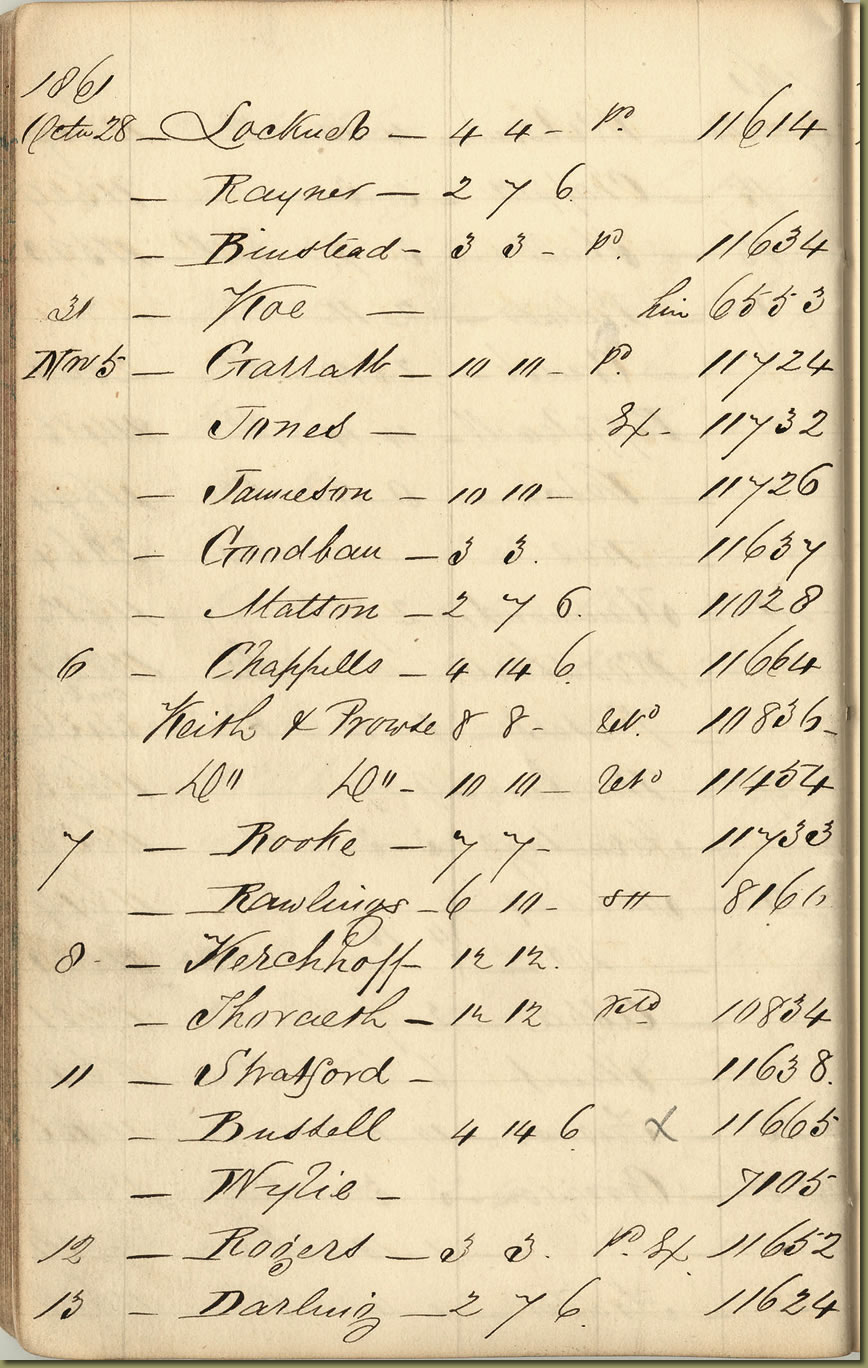 1861
Octr 28 — Lockner — 4 4 - Pd. 11614
— Rayner — 2 7 6.
— Binstead - 3 3 - Pd. 11634
31 — Koe — hire 6553
Nov 5 — Garratt — 10 10 - Pd. 11724
— Jones — Ex - 11732
— Jamieson — 10 10 — 11726
— Goodban — 3 3. 11637
— Matson — 2 7 6. 11028
6 — Chappells — 4 14 6. 11664
Keith & Prowse 8 8 - retd 10836 -
— Do" Do" - 10 10 — retd 11454
7 — Rooke — 7 7 - 11733
— Rawlings - 6 10 - SH 8160
8 - — Kerchhoff - 12 12.
— — 12 12 retd 10834
11 — Stratford - 11638.
— Bussell 4 14 6 x 11665
— Wylie - 7105
12 — Rogers — 3 3. Pd. Ex. 11652
13 — Darling — 2 7 6. 11624